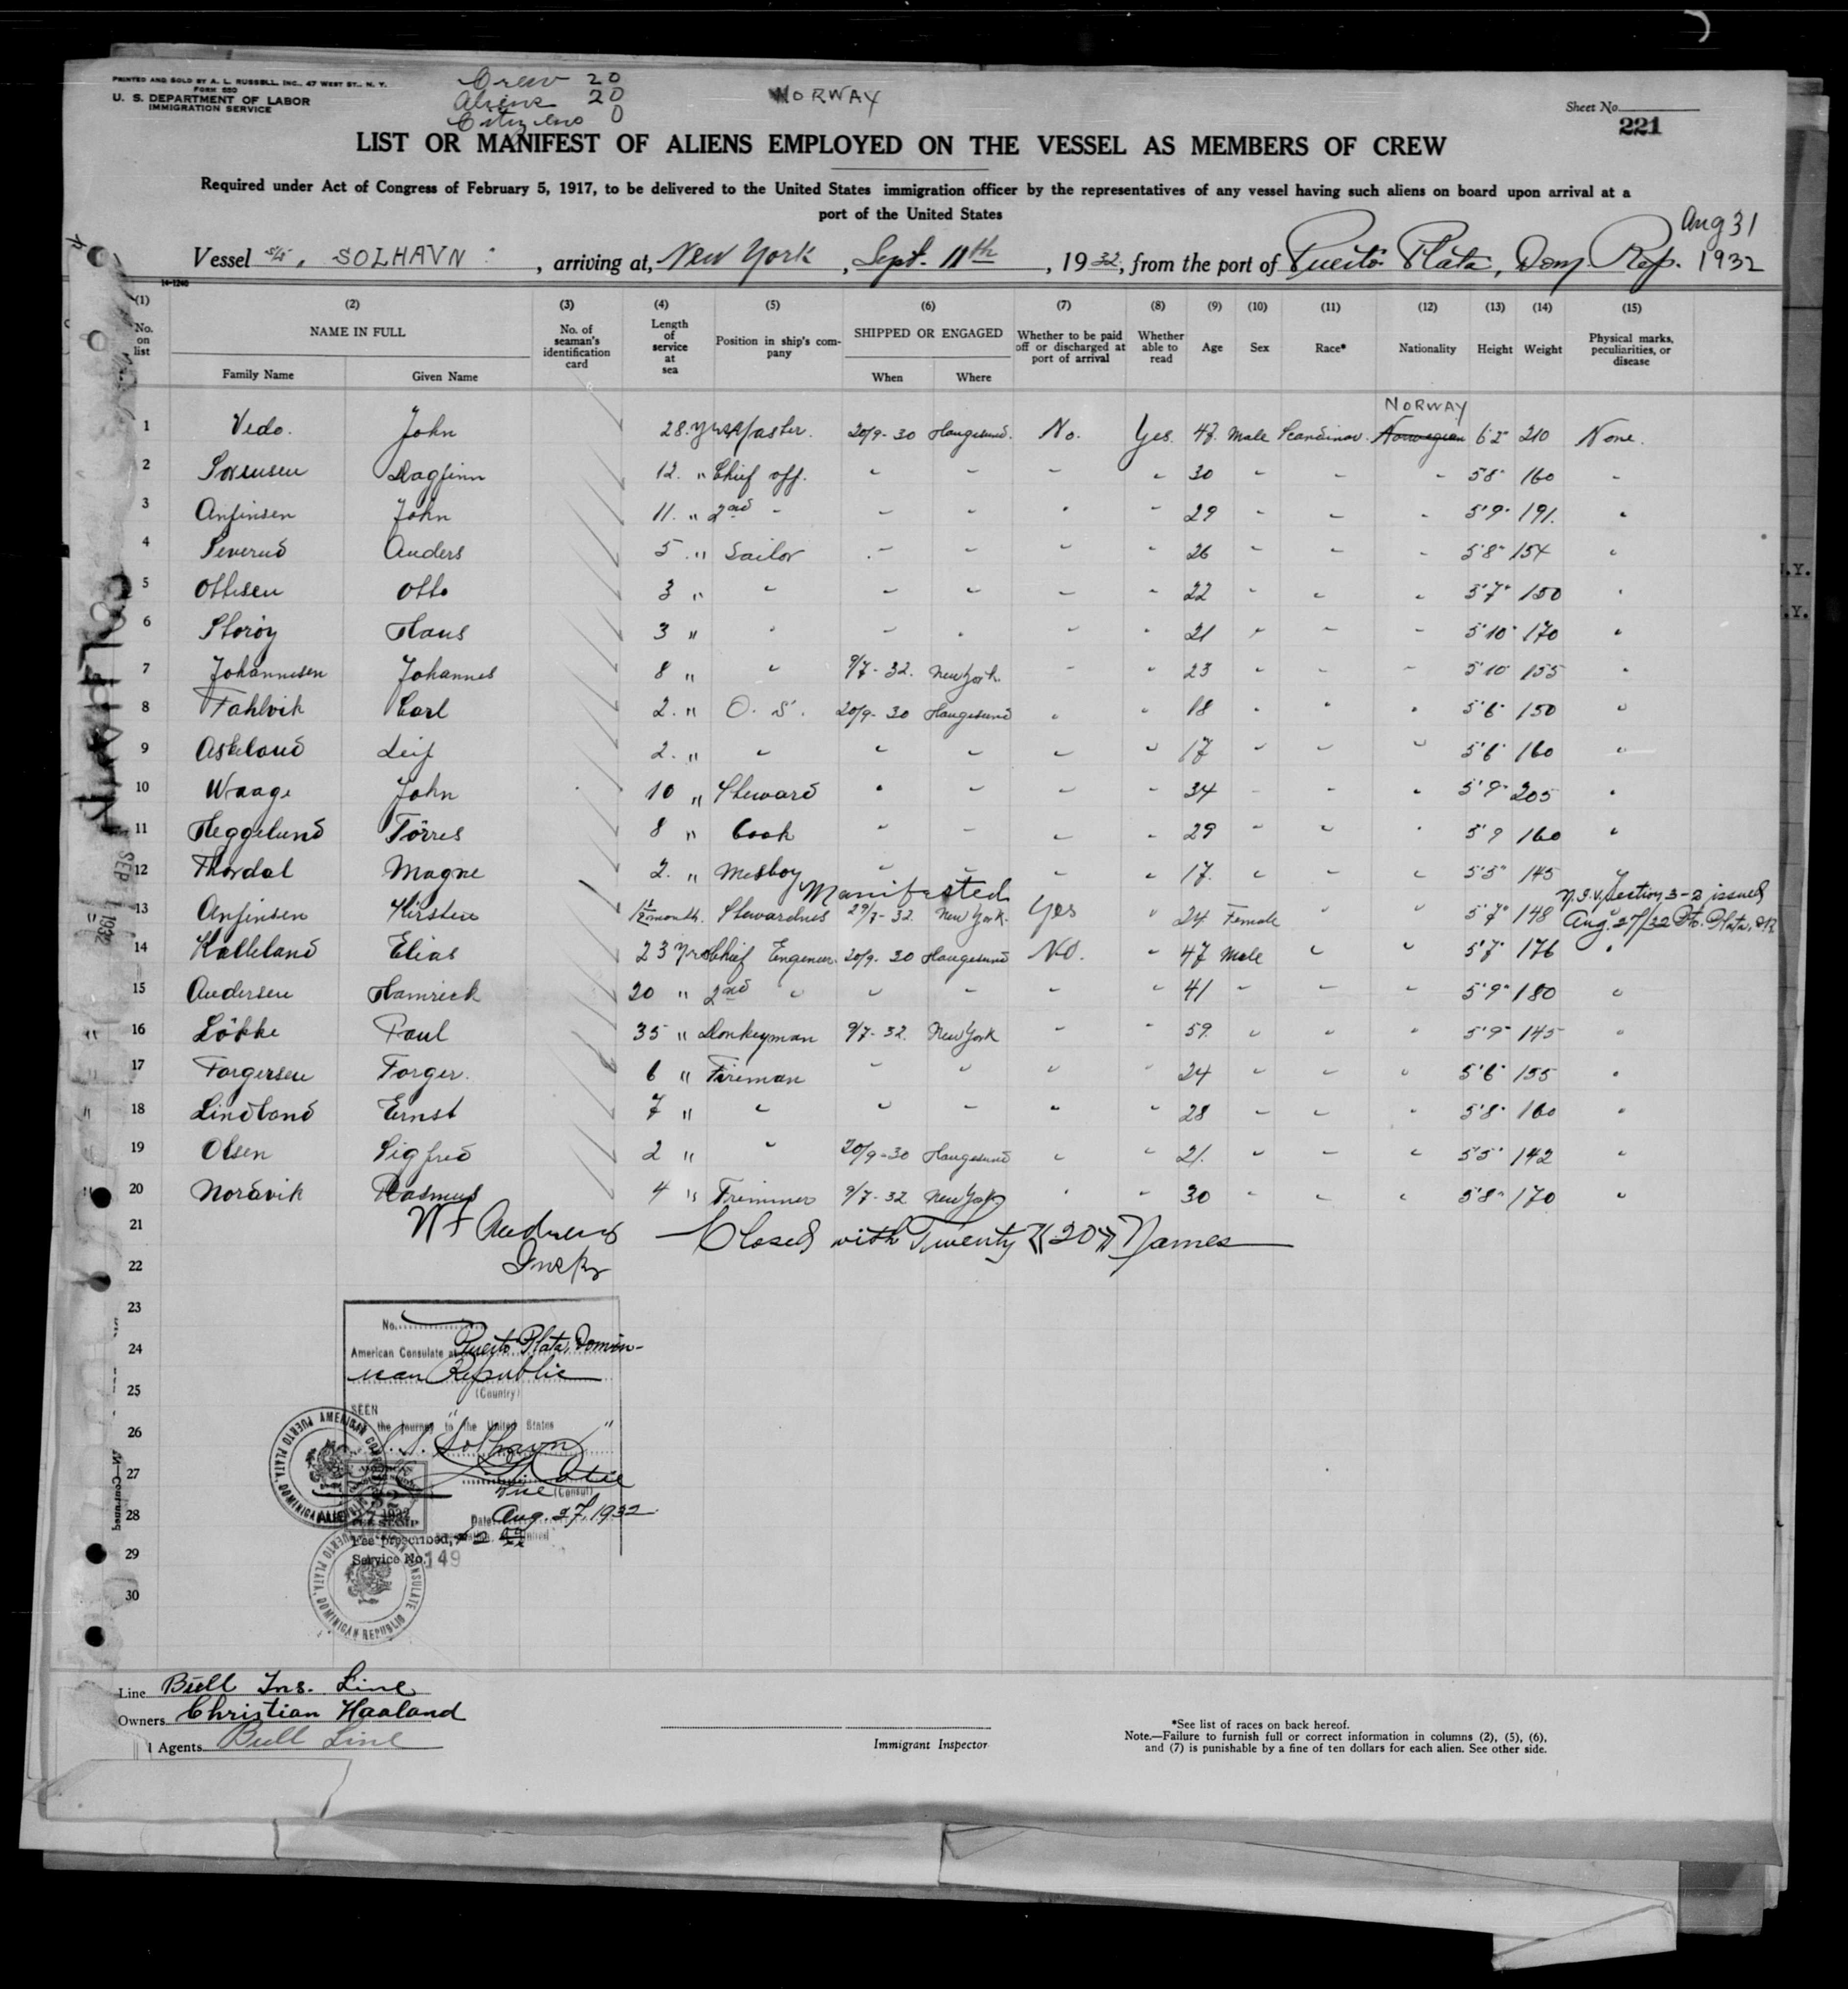 PRINTED AND SOLD BY A. L. RUSSELL, INC., 47 WEST ST., N. Y.
FORM 680
U. S. DEPARTMENT OF LABOR
IMMIGRATION SERVICE
Crew 20
Aliens 20
Citizens 0
NORWAY
Sheet No.
221
LIST OR MANIFEST OF ALIENS EMPLOYED ON THE VESSEL AS MEMBERS OF CREW
Required under Act of Congress of February 5, 1917, to be delivered to the United States immigration officer by the representatives of any vessel having such aliens on board upon arrival at a
port of the United States
Aug 31
Vessel S/S. SOLHAVN, arriving at, New York, Sept. 11th, 1932, from the port of Puerto Plata, Dom. Rep. 1932
14-1240
(1) (2) (3) (4) (5) (6) (7) (8) (9) (10) (11) (12) (13) (14) (15)
No. on list NAME IN FULL Family Name Given Name No. of seaman's identification card Length of service at sea Position in ship's company SHIPPED OR ENGAGED When Where Whether to be paid off or discharged at port of arrival Whether able to read Age Sex Race* Nationality Height Weight Physical marks, peculiarities, or disease
NORWAY
1 Vedo. John 28 yrs Master. 20/9-30 Haugesund. No. Yes. 47. Male Scandinav. Norwegian 6'2" 210 None.
2 Sorensen Dagfinn 12. " Chief off. " " " " 30 " " " 5'8" 160 "
3 Anfinsen John 11. " 2nd " " " " " 29 " " " 5'9" 191. "
4 Severud Anders 5. " Sailor " " " " 26 " " " 5'8" 154 "
5 Ottesen Otto 3 " " " " " " 22 " " " 5'7" 150 "
6 Storöy Hans 3 " " " " " " 21 " " " 5'10" 170 "
7 Johannesen Johannes 8 " " 9/7-32. New York. " " 23 " " " 5'10" 155 "
8 Fahlvik Carl 2. " O. S. 20/9-30 Haugesund " " 18 " " " 5'6" 150 "
9 Askeland Leif 2. " " " " " " 17 " " " 5'6" 160 "
10 Waage John 10 " Steward " " " " 34 " " " 5'9" 205 "
11 Heggelund Törres 8 " Cook " " " " 29 " " " 5'9 160 "
12 Thordal Magne 2. " Mesboy " " " " 17. " " " 5'5" 145 "
Manifested N.I.V. Section 3-2 issued
13 Anfinsen Kirsten 1 1/2 month. Stewardnes 29/7-32. New York. Yes " 24 Female " " 5'7" 148 Aug. 27/32 Pto. Plata, D.R.
14 Kalleland Elias 23 yrs Chief Engeneer. 20/9-30 Haugesund No. " 47 Male " " 5'7" 176 "
15 Andersen Hamrick 20 " 2nd " " " " " 41 " " " 5'9" 180 "
16 Lökke Paul 35 " Donkeyman 9/7-32. New York " " 59. " " " 5'9" 145 "
17 Torgersen Torger. 6 " Fireman " " " " 24 " " " 5'6" 155 "
18 Lindland Ernst 7 " " " " " " 28 " " " 5'8" 160 "
19 Olsen Sigfred 2 " " 20/9-30 Haugesund " " 21. " " " 5'5" 142 "
20 Nordvik Rasmus 4 " Trimmer 9/7-32 New York " " 30 " " " 5'8" 170 "
21 Andrews Closed with Twenty "20" Names
22 Inspr
23
24
25
26
27
28
29
30
No.
American Consulate at Puerto Plata, Domin-
ican Republic
(Country)
SEEN
the journey to the United States
S.S. "Solhavn"
Vice (Consul)
Date Aug. 27, 1932
Fee prescribed,
Service No. 149
AMERICAN CONSULATE
PUERTO PLATA, DOMINICAN REPUBLIC
SEP 1932
Line Bull Ins. Line
Owners Christian Haaland
Agents Bull Line
Immigrant Inspector
*See list of races on back hereof.
Note.—Failure to furnish full or correct information in columns (2), (5), (6),
and (7) is punishable by a fine of ten dollars for each alien. See other side.